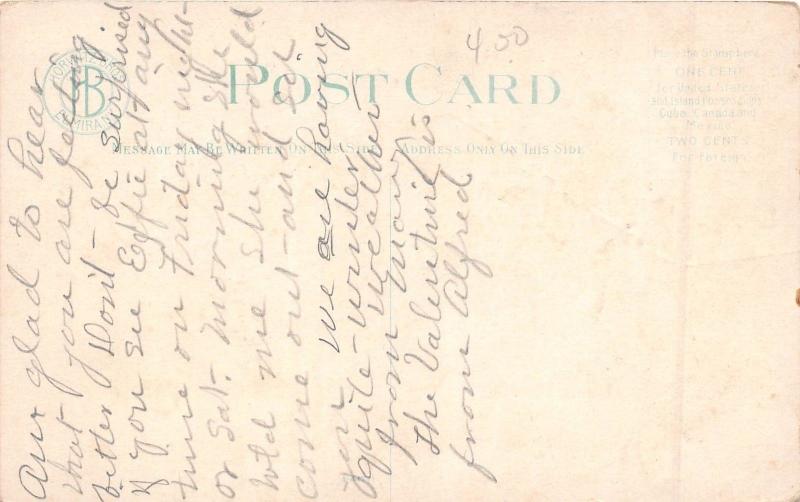 4.00
POST CARD
MESSAGE MAY BE WRITTEN ON THIS SIDE
ADDRESS ONLY ON THIS SIDE
ONE CENT
for United States
and Island Possessions
Cuba, Canada and
Mexico
TWO CENTS
For Foreign
Am glad to hear
that you are feeling
better Don't be surprised
if you see Effie out any
time on Friday night
or Sat. morning she
told me she would
come out and see
you We are having
quite winter
weather
from Mary
The Valentine is
from Alfred